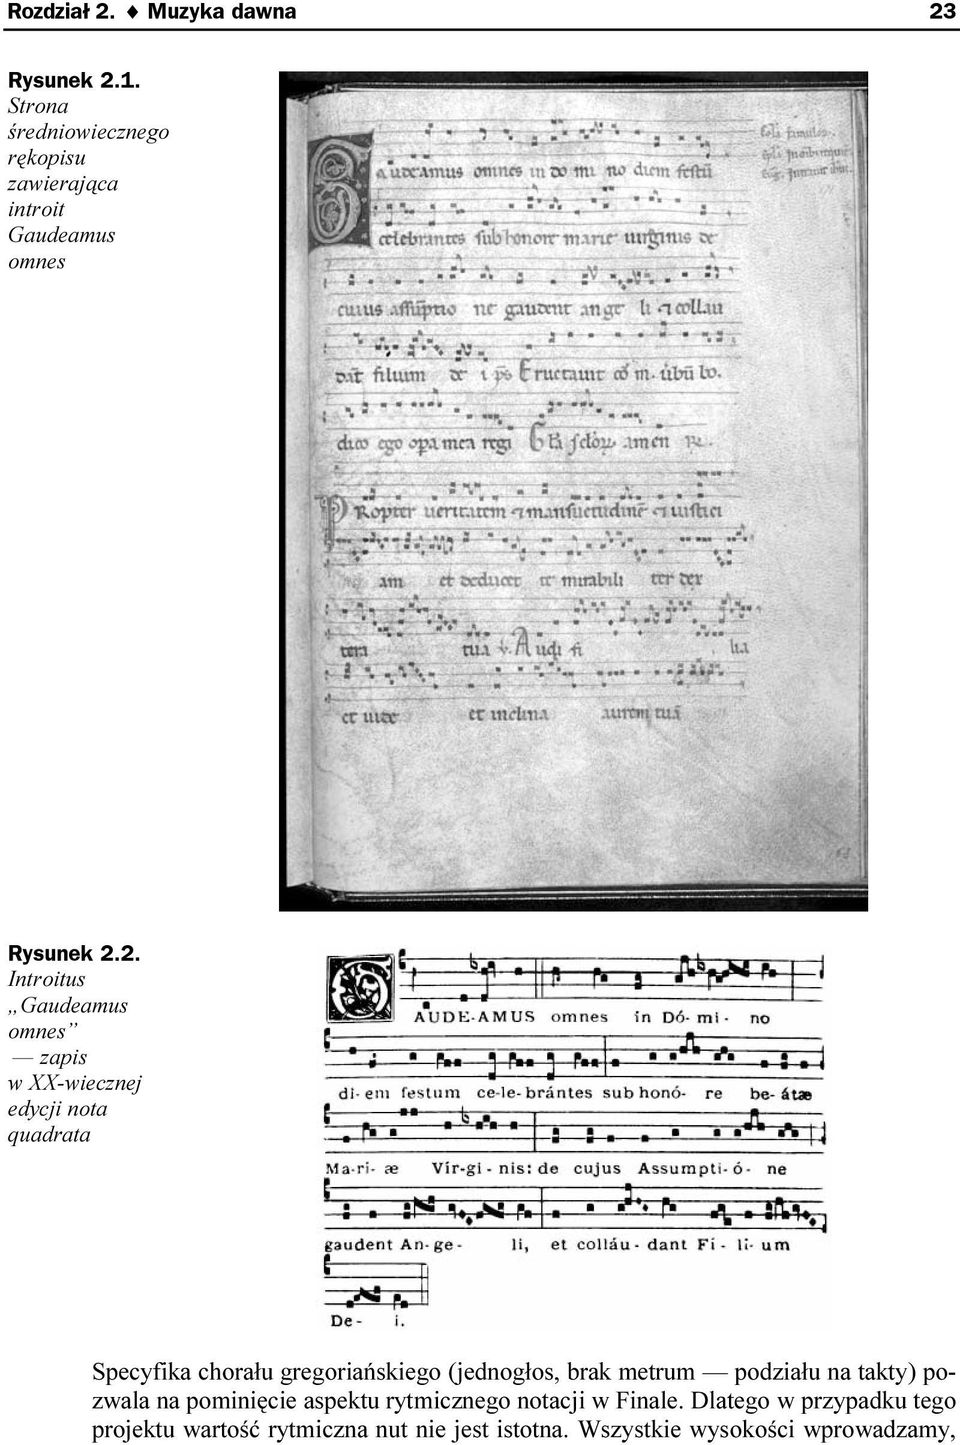 Rozdział 2. ♦ Muzyka dawna 23
Rysunek 2.1.
Strona
średniowiecznego
rękopisu
zawierająca
introit
Gaudeamus
omnes
audeamus omnes in do mi no diem festū
celebrantes sub honore marie uirginis de
cuius assūptio ne gaudent ange li ⁊ collau
dāt filium de i
dico ego opa mea regi amen
Propter ueritatem ⁊ mansuetudinē ⁊ iustici
am et deducet te mirabili ter dex
tera tua Audi fi lia
et uide et inclina aurem tuā
Rysunek 2.2.
Introitus
„Gaudeamus
omnes”
— zapis
w XX-wiecznej
edycji nota
quadrata
GAUDE-AMUS omnes in Dó- mi - no
di- em festum ce-le- brántes sub honó- re be- átæ
Ma-ri- æ Vír-gi - nis: de cujus Assumpti- ó - ne
gaudent An- ge - li, et colláu - dant Fi - li- um
De - i.
Specyfika chorału gregoriańskiego (jednogłos, brak metrum — podziału na takty) po-
zwala na pominięcie aspektu rytmicznego notacji w Finale. Dlatego w przypadku tego
projektu wartość rytmiczna nut nie jest istotna. Wszystkie wysokości wprowadzamy,